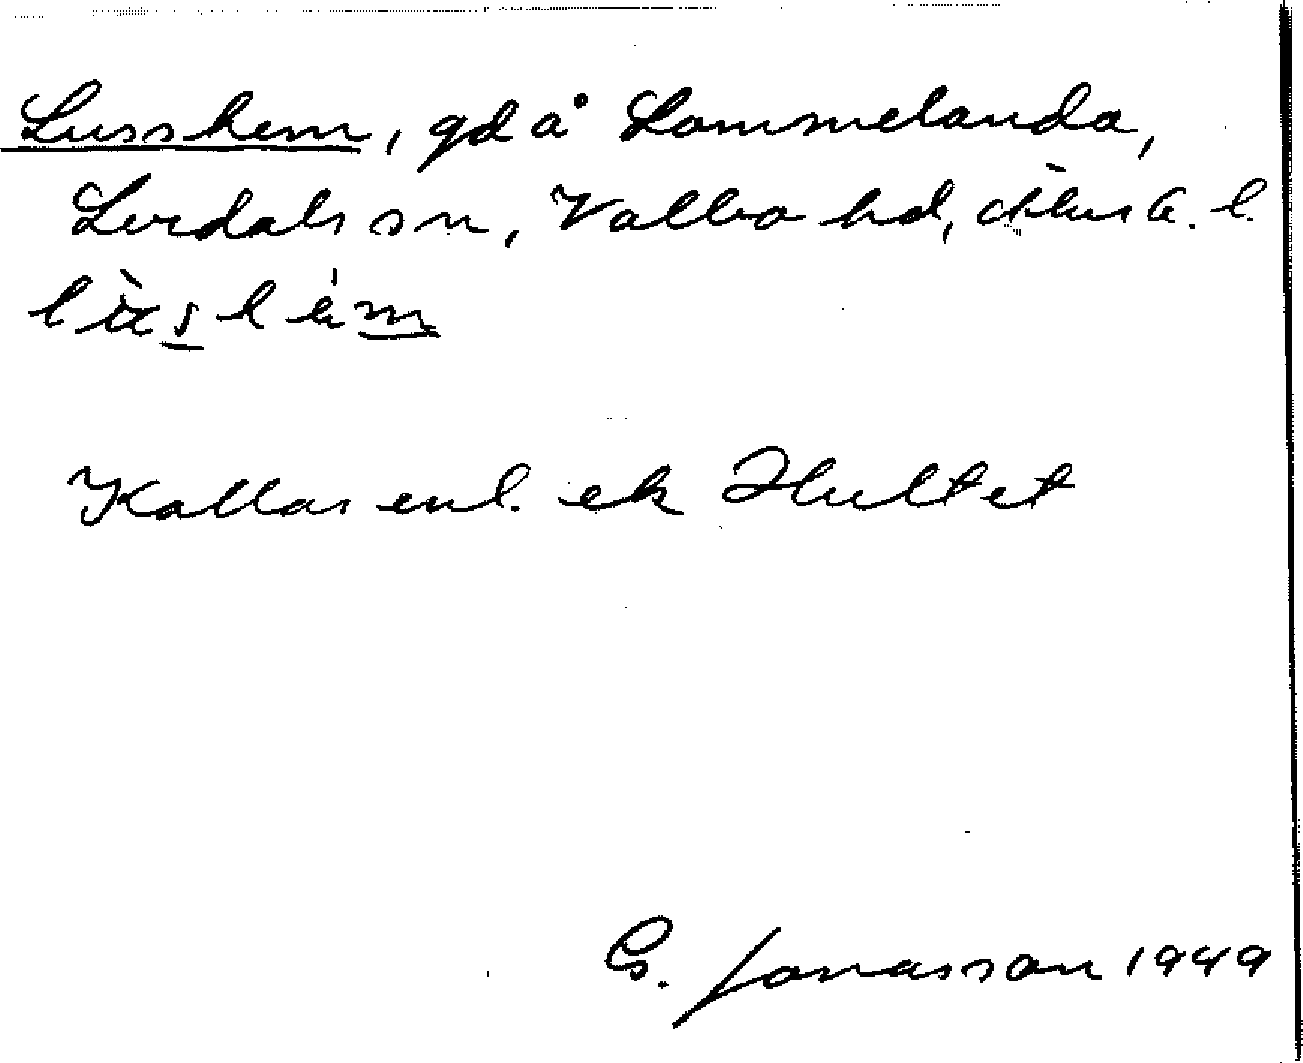 Lusshem, gd å Lommelanda,
Lerdals sn, Valbo hd, Älvsb. l.
Kallas enl. ek Hultet
G. Jonasson 1949